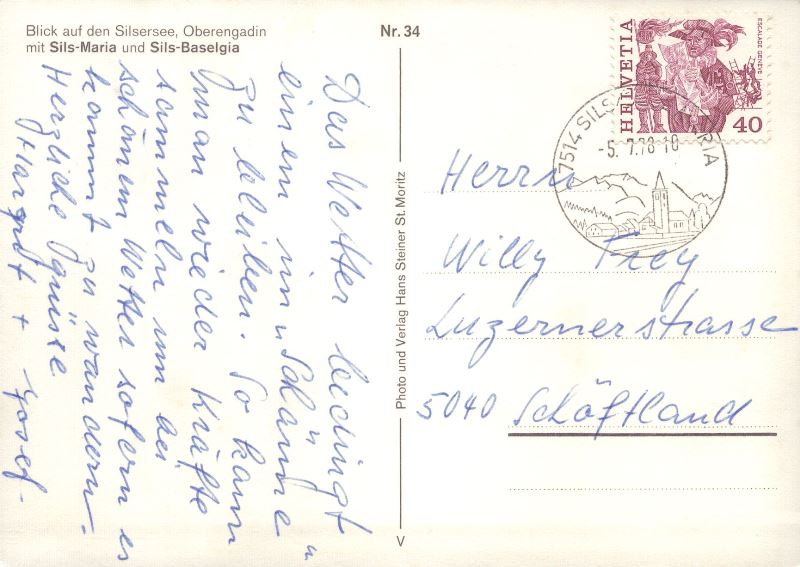 Blick auf den Silsersee, Oberengadin
mit Sils-Maria und Sils-Baselgia
Nr. 34
Das Wetter bedingt
einem im "Schärme"
zu bleiben. So kann
man wieder Kräfte
sammeln um bei
schönem Wetter sofern es
kommt zu wandern.
Herzliche Grüsse
Margrit + Josef.
Photo und Verlag Hans Steiner St. Moritz
V
HELVETIA
ESCALADE GENÈVE
40
7514 SILS MARIA
-5. 7.78-18
Herrn
Willy Frey
Luzernerstrasse
5040 Schöftland